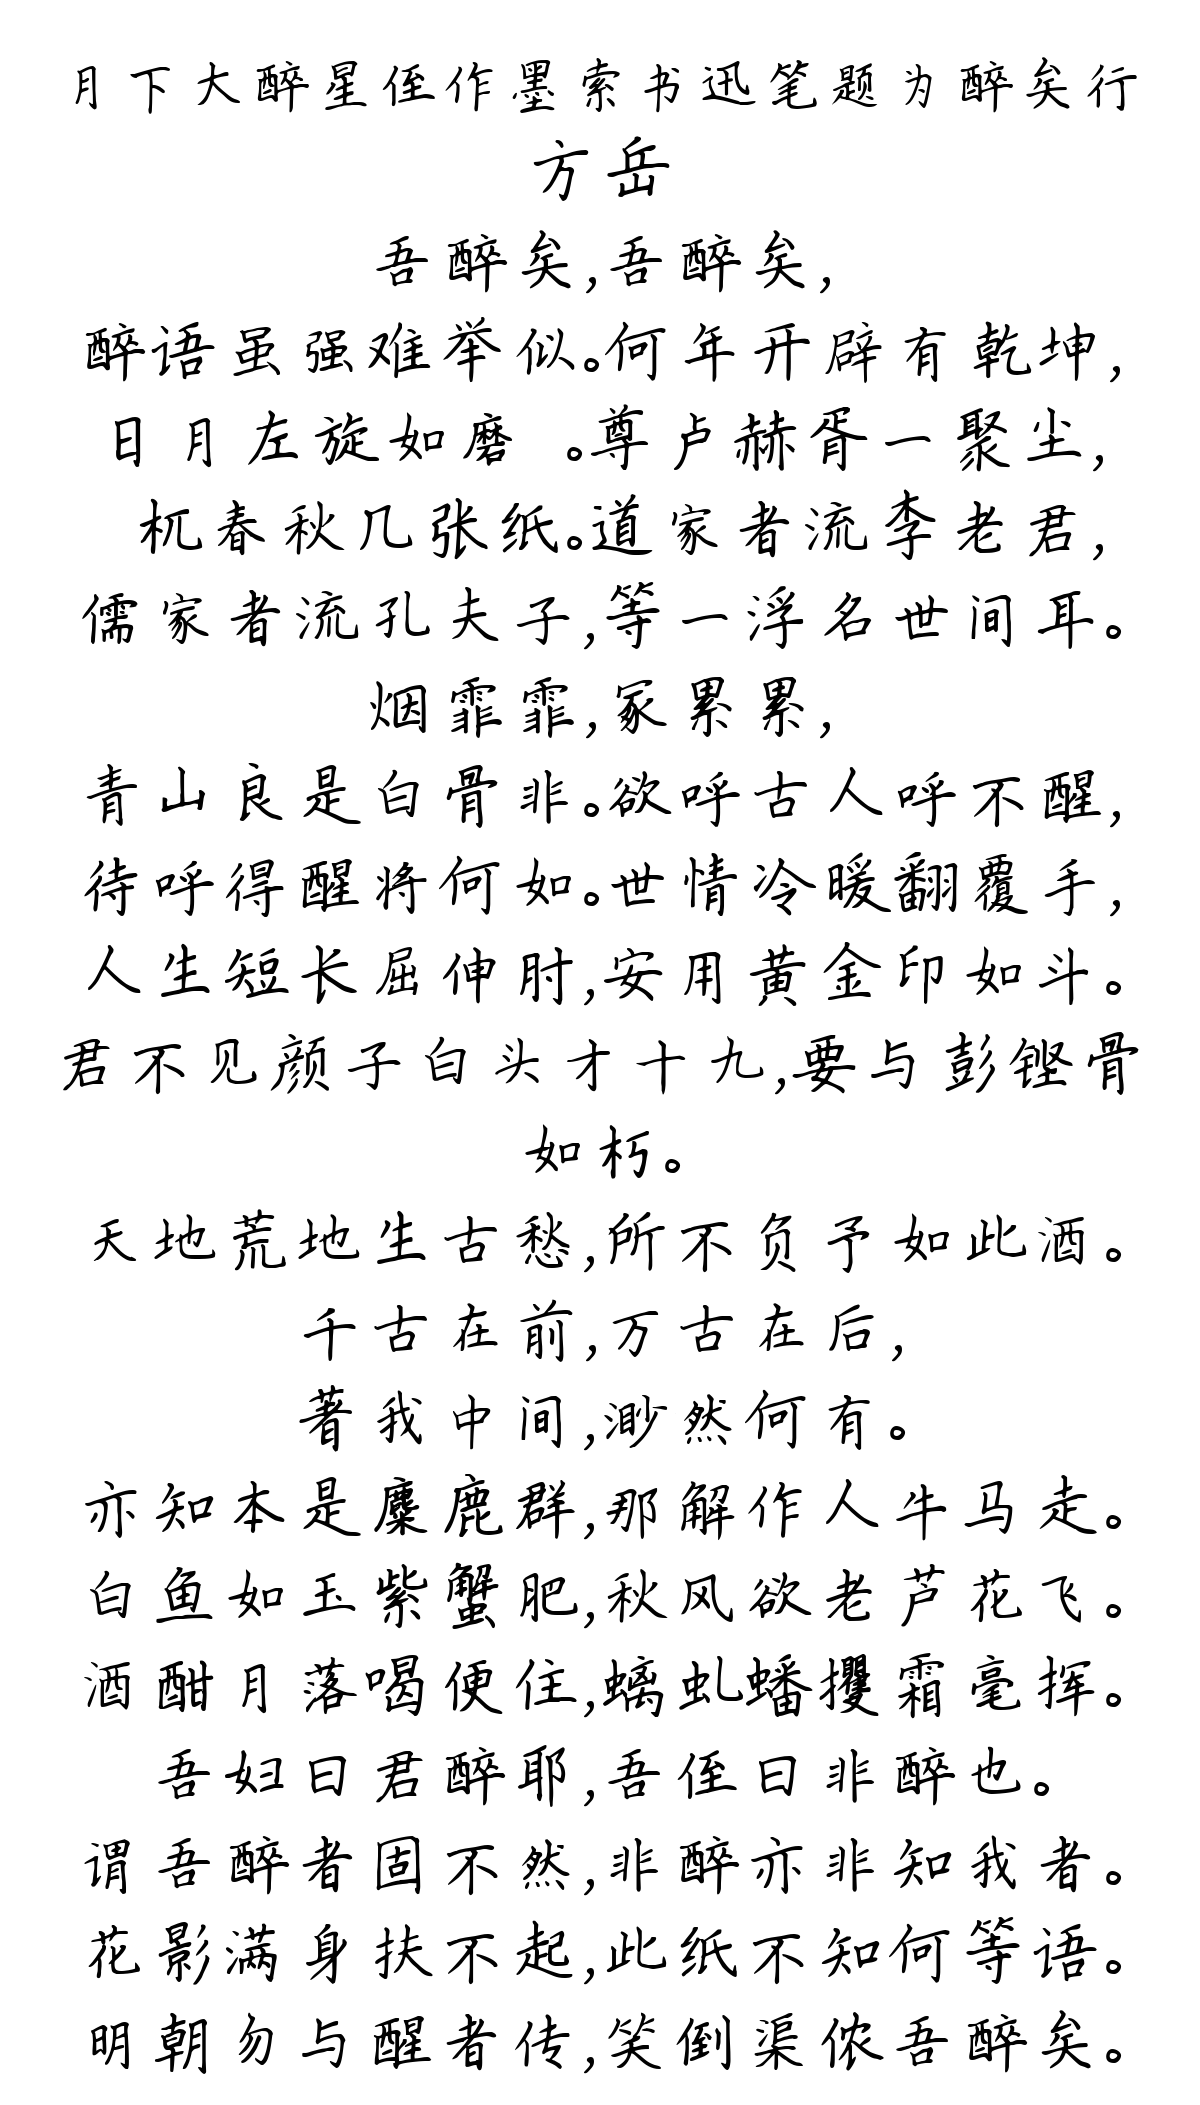 月下大醉星侄作墨索书迅笔题为醉矣行
方岳
吾醉矣,吾醉矣,
醉语虽强难举似。何年开辟有乾坤,
日月左旋如磨 。尊卢赫胥一聚尘,
杌春秋几张纸。道家者流李老君,
儒家者流孔夫子,等一浮名世间耳。
烟霏霏,冢累累,
青山良是白骨非。欲呼古人呼不醒,
待呼得醒将何如。世情冷暖翻覆手,
人生短长屈伸肘,安用黄金印如斗。
君不见颜子白头才十九,要与彭铿骨
如朽。
天地荒地生古愁,所不负予如此酒。
千古在前,万古在后,
著我中间,渺然何有。
亦知本是麋鹿群,那解作人牛马走。
白鱼如玉紫蟹肥,秋风欲老芦花飞。
酒酣月落喝便住,螭虬蟠攫霜毫挥。
吾妇曰君醉耶,吾侄曰非醉也。
谓吾醉者固不然,非醉亦非知我者。
花影满身扶不起,此纸不知何等语。
明朝勿与醒者传,笑倒渠侬吾醉矣。